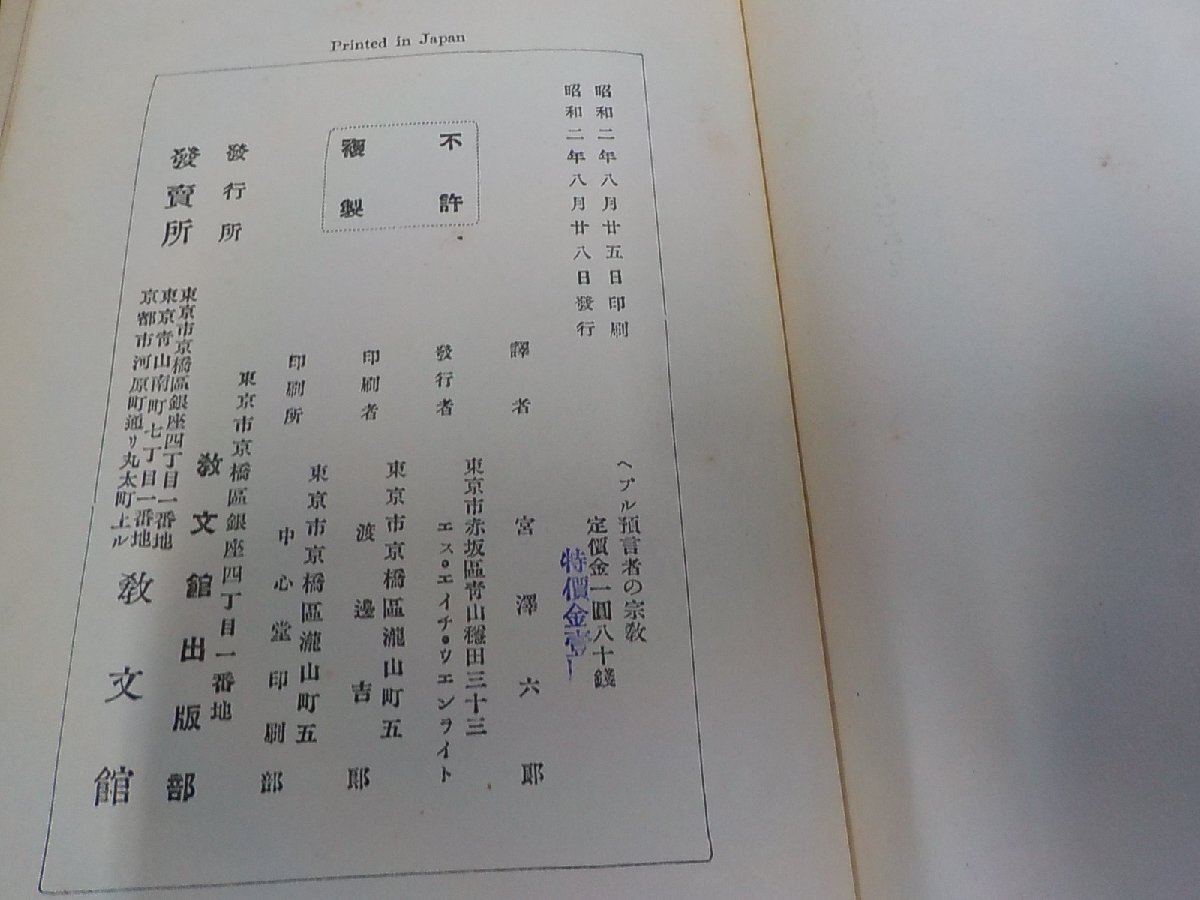 Printed in Japan
昭和二年八月廿五日印刷
昭和二年八月廿八日發行
ヘブル預言者の宗教
定價金一圓八十錢
特價金壹
不許
複製
譯者
宮澤六郎
東京市赤坂區青山穩田三十三
發行者
エス・エイチ・ウエンライト
東京市京橋區瀧山町五
印刷者
渡邊吉郎
東京市京橋區瀧山町五
印刷所
中心堂印刷部
東京市京橋區銀座四丁目一番地
發行所
教文館出版部
東京市京橋區銀座四丁目一番地
東京青山南町七丁目一番地
京都市河原町通リ丸太町上ル
發賣所
教文館